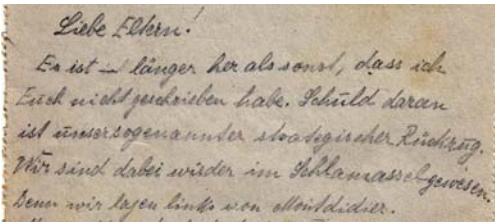 Liebe Eltern!
Es ist länger her als sonst, dass ich
Euch nicht geschrieben habe. Schuld daran
ist unser sogenannter strategischer Rückzug.
Wir sind dabei wieder im Schlamassel gewesen.
Denn wir lagen links von Montdidier.